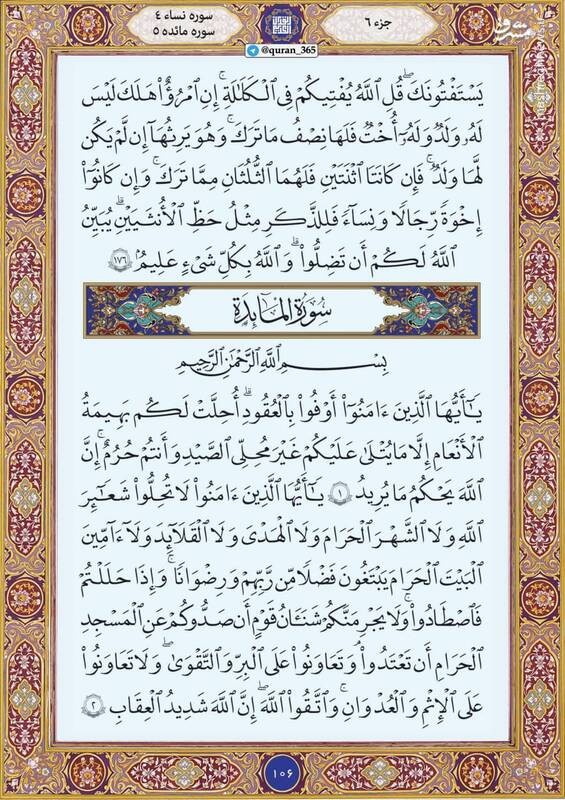 جزء ۶
سوره نساء ۴
سوره مائده ۵
مشرق
@quran_365
يَسْتَفْتُونَكَ قُلِ ٱللَّهُ يُفْتِيكُمْ فِي ٱلْكَلَٰلَةِ ۚ إِنِ ٱمْرُؤٌا۟ هَلَكَ لَيْسَ
لَهُۥ وَلَدٌ وَلَهُۥٓ أُخْتٌ فَلَهَا نِصْفُ مَا تَرَكَ ۚ وَهُوَ يَرِثُهَآ إِن لَّمْ يَكُن
لَّهَا وَلَدٌ ۚ فَإِن كَانَتَا ٱثْنَتَيْنِ فَلَهُمَا ٱلثُّلُثَانِ مِمَّا تَرَكَ ۚ وَإِن كَانُوٓا۟
إِخْوَةً رِّجَالًا وَنِسَآءً فَلِلذَّكَرِ مِثْلُ حَظِّ ٱلْأُنثَيَيْنِ ۗ يُبَيِّنُ
ٱللَّهُ لَكُمْ أَن تَضِلُّوا۟ ۗ وَٱللَّهُ بِكُلِّ شَىْءٍ عَلِيمٌۢ ۝١٧٦
سُورَةُ المَائِدَةِ
بِسْمِ ٱللَّهِ ٱلرَّحْمَٰنِ ٱلرَّحِيمِ
يَٰٓأَيُّهَا ٱلَّذِينَ ءَامَنُوٓا۟ أَوْفُوا۟ بِٱلْعُقُودِ ۚ أُحِلَّتْ لَكُم بَهِيمَةُ
ٱلْأَنْعَٰمِ إِلَّا مَا يُتْلَىٰ عَلَيْكُمْ غَيْرَ مُحِلِّى ٱلصَّيْدِ وَأَنتُمْ حُرُمٌ ۗ إِنَّ
ٱللَّهَ يَحْكُمُ مَا يُرِيدُ ۝١ يَٰٓأَيُّهَا ٱلَّذِينَ ءَامَنُوا۟ لَا تُحِلُّوا۟ شَعَٰٓئِرَ
ٱللَّهِ وَلَا ٱلشَّهْرَ ٱلْحَرَامَ وَلَا ٱلْهَدْىَ وَلَا ٱلْقَلَٰٓئِدَ وَلَآ ءَآمِّينَ
ٱلْبَيْتَ ٱلْحَرَامَ يَبْتَغُونَ فَضْلًا مِّن رَّبِّهِمْ وَرِضْوَٰنًا ۚ وَإِذَا حَلَلْتُمْ
فَٱصْطَادُوا۟ ۚ وَلَا يَجْرِمَنَّكُمْ شَنَـَٔانُ قَوْمٍ أَن صَدُّوكُمْ عَنِ ٱلْمَسْجِدِ
ٱلْحَرَامِ أَن تَعْتَدُوا۟ ۘ وَتَعَاوَنُوا۟ عَلَى ٱلْبِرِّ وَٱلتَّقْوَىٰ ۖ وَلَا تَعَاوَنُوا۟
عَلَى ٱلْإِثْمِ وَٱلْعُدْوَٰنِ ۚ وَٱتَّقُوا۟ ٱللَّهَ ۖ إِنَّ ٱللَّهَ شَدِيدُ ٱلْعِقَابِ ۝٢
۱۰۶